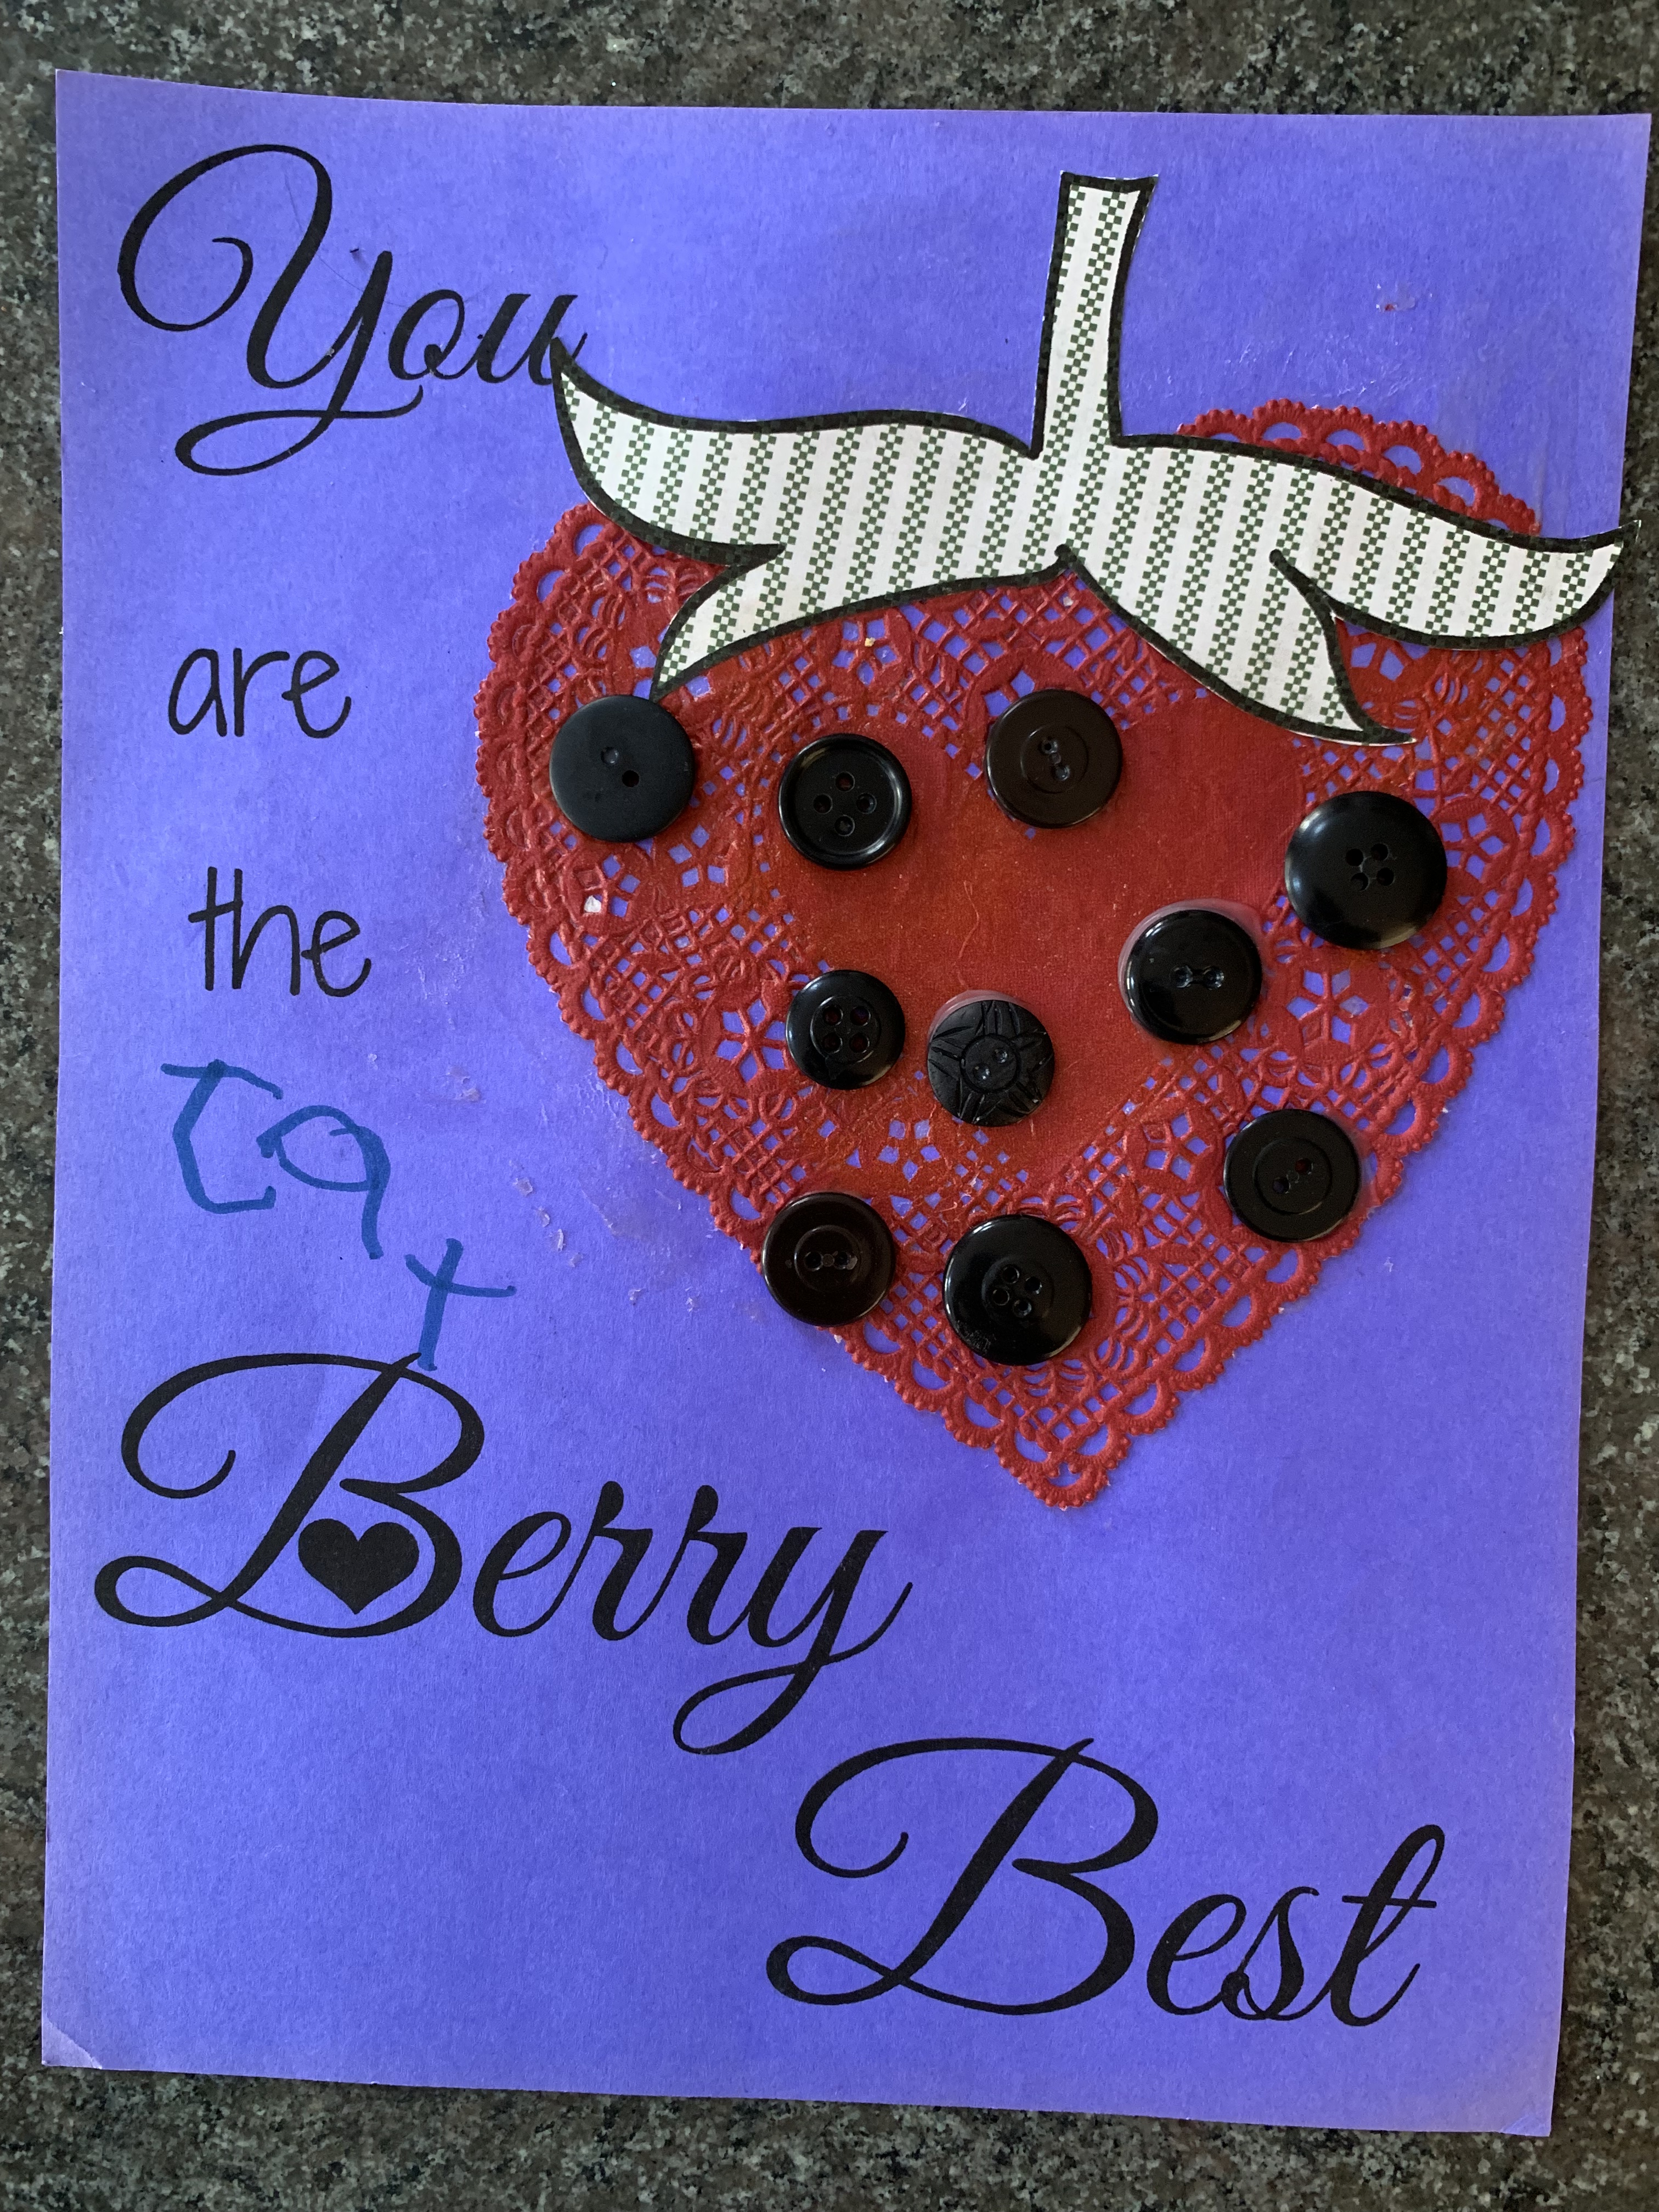 You
are
the
Cat
Berry
Best